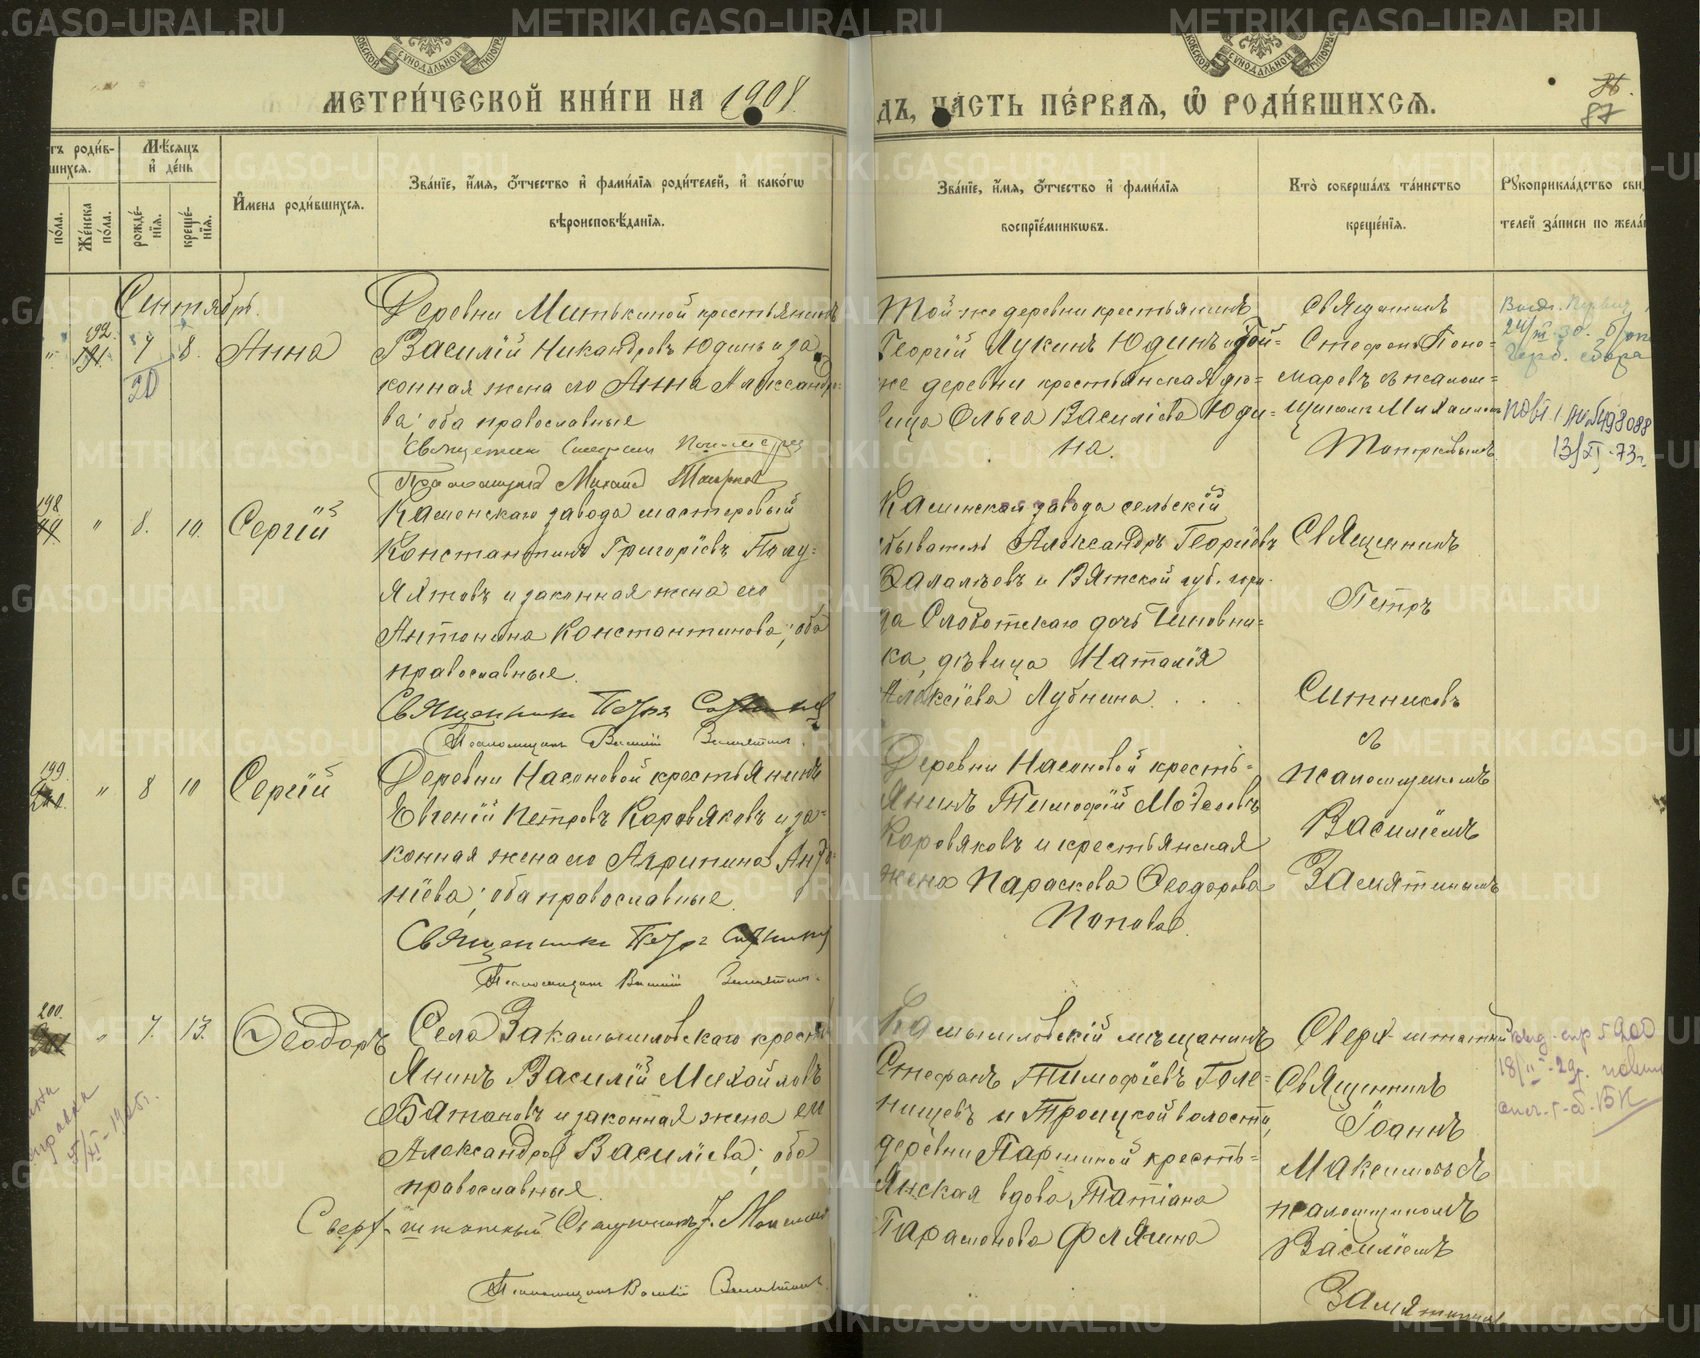 МЕТРИ́ЧЕСКОЙ КНИ́ГИ НА 1908
ДЪ, ЧА́СТЬ ПЕ́РВАЯ, Ѽ РОДИ́ВШИХСЯ.
87
тъ роди́в-
шихся.
Мѣ́сяцъ
и҆ де́нь
по́ла.
Же́нска
по́ла.
рожде́-
нїя.
креще́-
нїя.
И҆мена роди́вшихся.
Зва́нїе, и҆́мя, ѻ҆́тчество и҆ фами́лїя роди́телей, и҆ како́гѡ
вѣроисповѣ́данїя.
Зва́нїе, и҆́мя, ѻ҆́тчество и҆ фами́лїя
воспрїе́мникѡвъ.
Кто̀ соверша́лъ та́инство
креще́нїя.
Рꙋкоприкла́дство сви
телей за́писи по жела
Сентябрь.
192.
"
7
8.
20
Анна
Деревни Митькиной крестьянинъ
Василій Никандровъ Юдинъ и за
конная жена его Анна Александро
ва; оба православные
Священник Стефан Пономарев
Псаломщикъ Михаил Топорков
Той же деревни крестьянинъ
Георгій Лукинъ Юдинъ и той-
же деревни крестьянская дѣ=
вица Ольга Василіева Юди=
на.
Священникъ
Стефанъ Поно=
маревъ съ псалом=
щикомъ Михаиломъ
Топорковымъ.
13/XI-73г.
198
"
8.
10.
Сергій
Каменскаго завода мастеровый
Константинъ Григоріевъ Полу-
яхтовъ и законная жена его
Антонина Константинова; оба
православные.
Священникъ Петръ Ситников
Псаломщикъ Василій Замятинъ.
Каменскаго завода сельскій
обыватель Александръ Георгіевъ
и Вятской губ. горо
да Слоботскаго дочь Чиновни=
ка, дѣвица Наталія
Алексіева Лубнина.
Священникъ
Петръ
Ситниковъ
съ
псаломщикомъ
Василіемъ
Замятинымъ
199.
"
8
10
Сергій
Деревни Насоновой крестьянинъ
Евгеній Петровъ Коровяковъ и за-
конная жена его Агрипина Анто
ніева; оба православные.
Священникъ Петръ Ситников
Псаломщикъ Василій Замятинъ.
Деревни Насоновой кресть=
янинъ Тимофей Модестовъ
Коровяковъ и крестьянская
жена Параскева Ѳеодорова
Попова.
200.
"
7.
13.
Ѳеодоръ
Села Закамышловскаго кресть
янинъ Василій Михайловъ
Батановъ и законная жена его
Александра Василіева; оба
православные.
Сверх-штатный Священникъ І. Максимов
Псаломщикъ Василій Замятинъ
Камышловскій мѣщанинъ
Стефанъ Тимофіевъ Голе-
нищевъ и Троицкой волости,
деревни Паршиной кресть-
янская вдова Татіана
Парамонова Флягина
Сверх-штатный
Священникъ
Іоаннъ
Максимовъ съ
псаломщикомъ
Василіемъ
Замятинымъ
METRIKI.GASO-URAL.RU